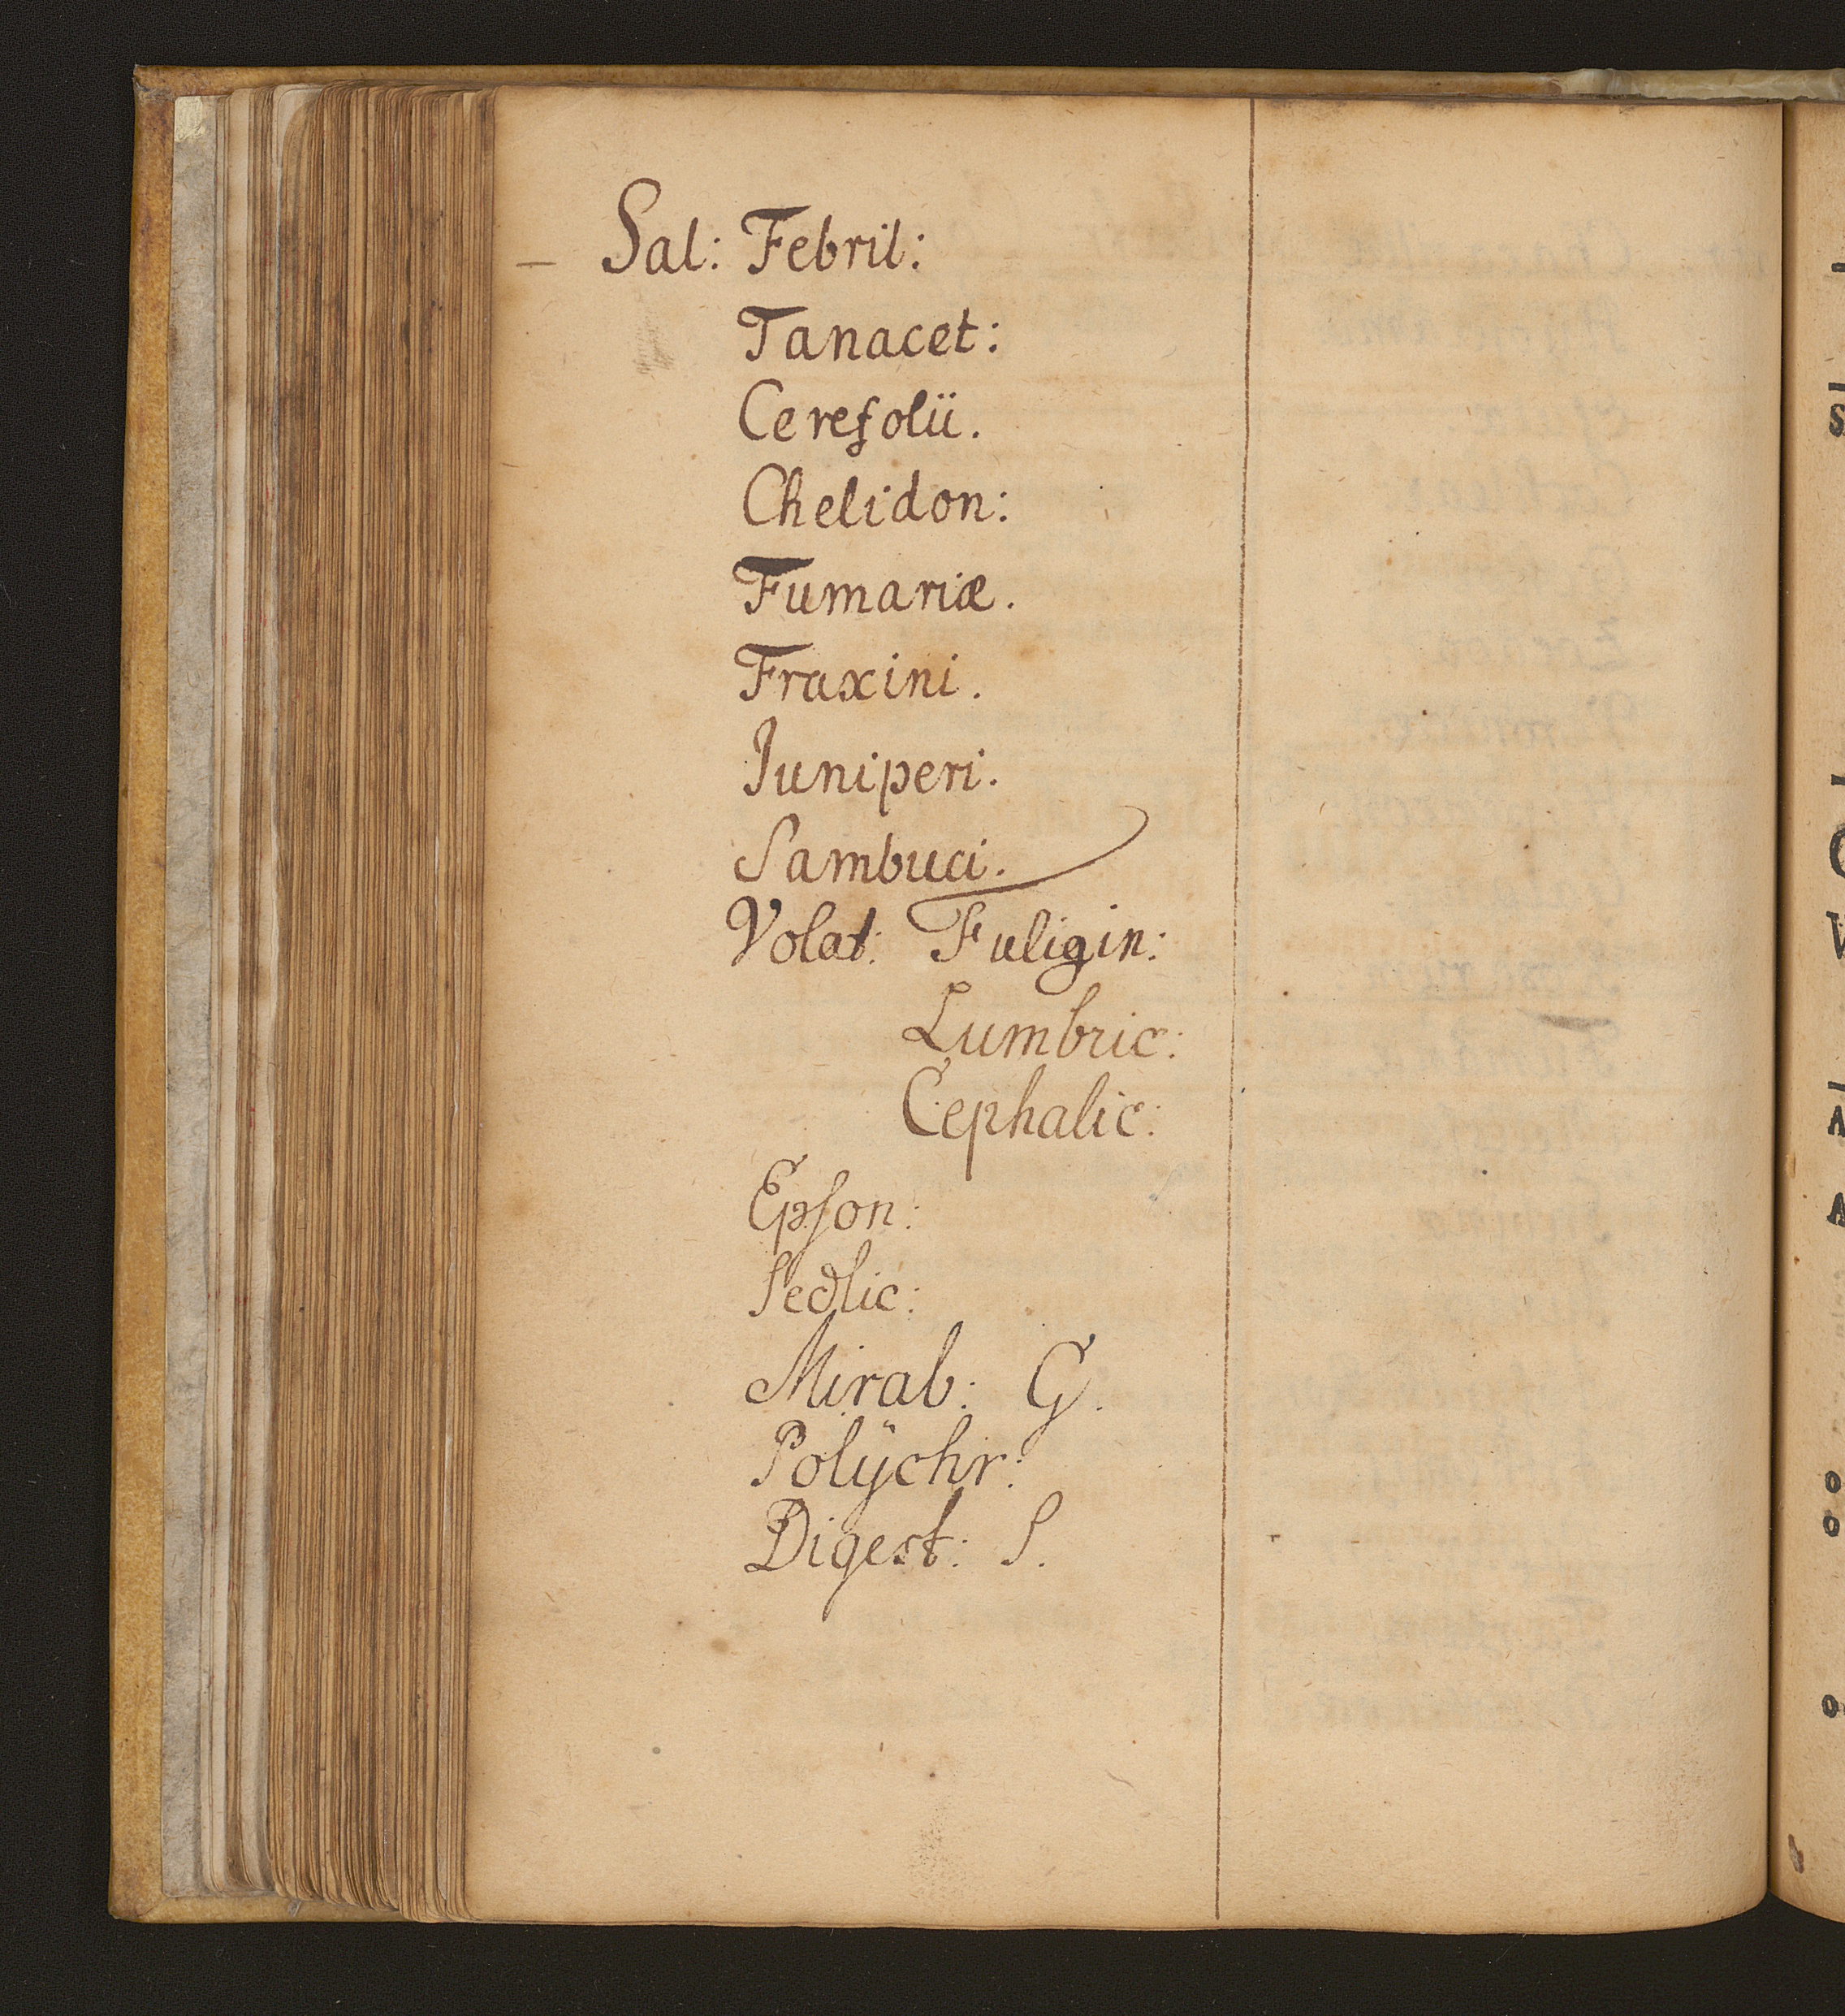 – Sal: Febril:
Tanacet:
Cerefolii.
Chelidon:
Fumariæ.
Fraxini.
Juniperi.
Sambuci.
Volat: Fuligin:
Lumbric:
Cephalic:
Epson:
Sedlic:
Mirab: G.
Polÿchr:
Digest: S.